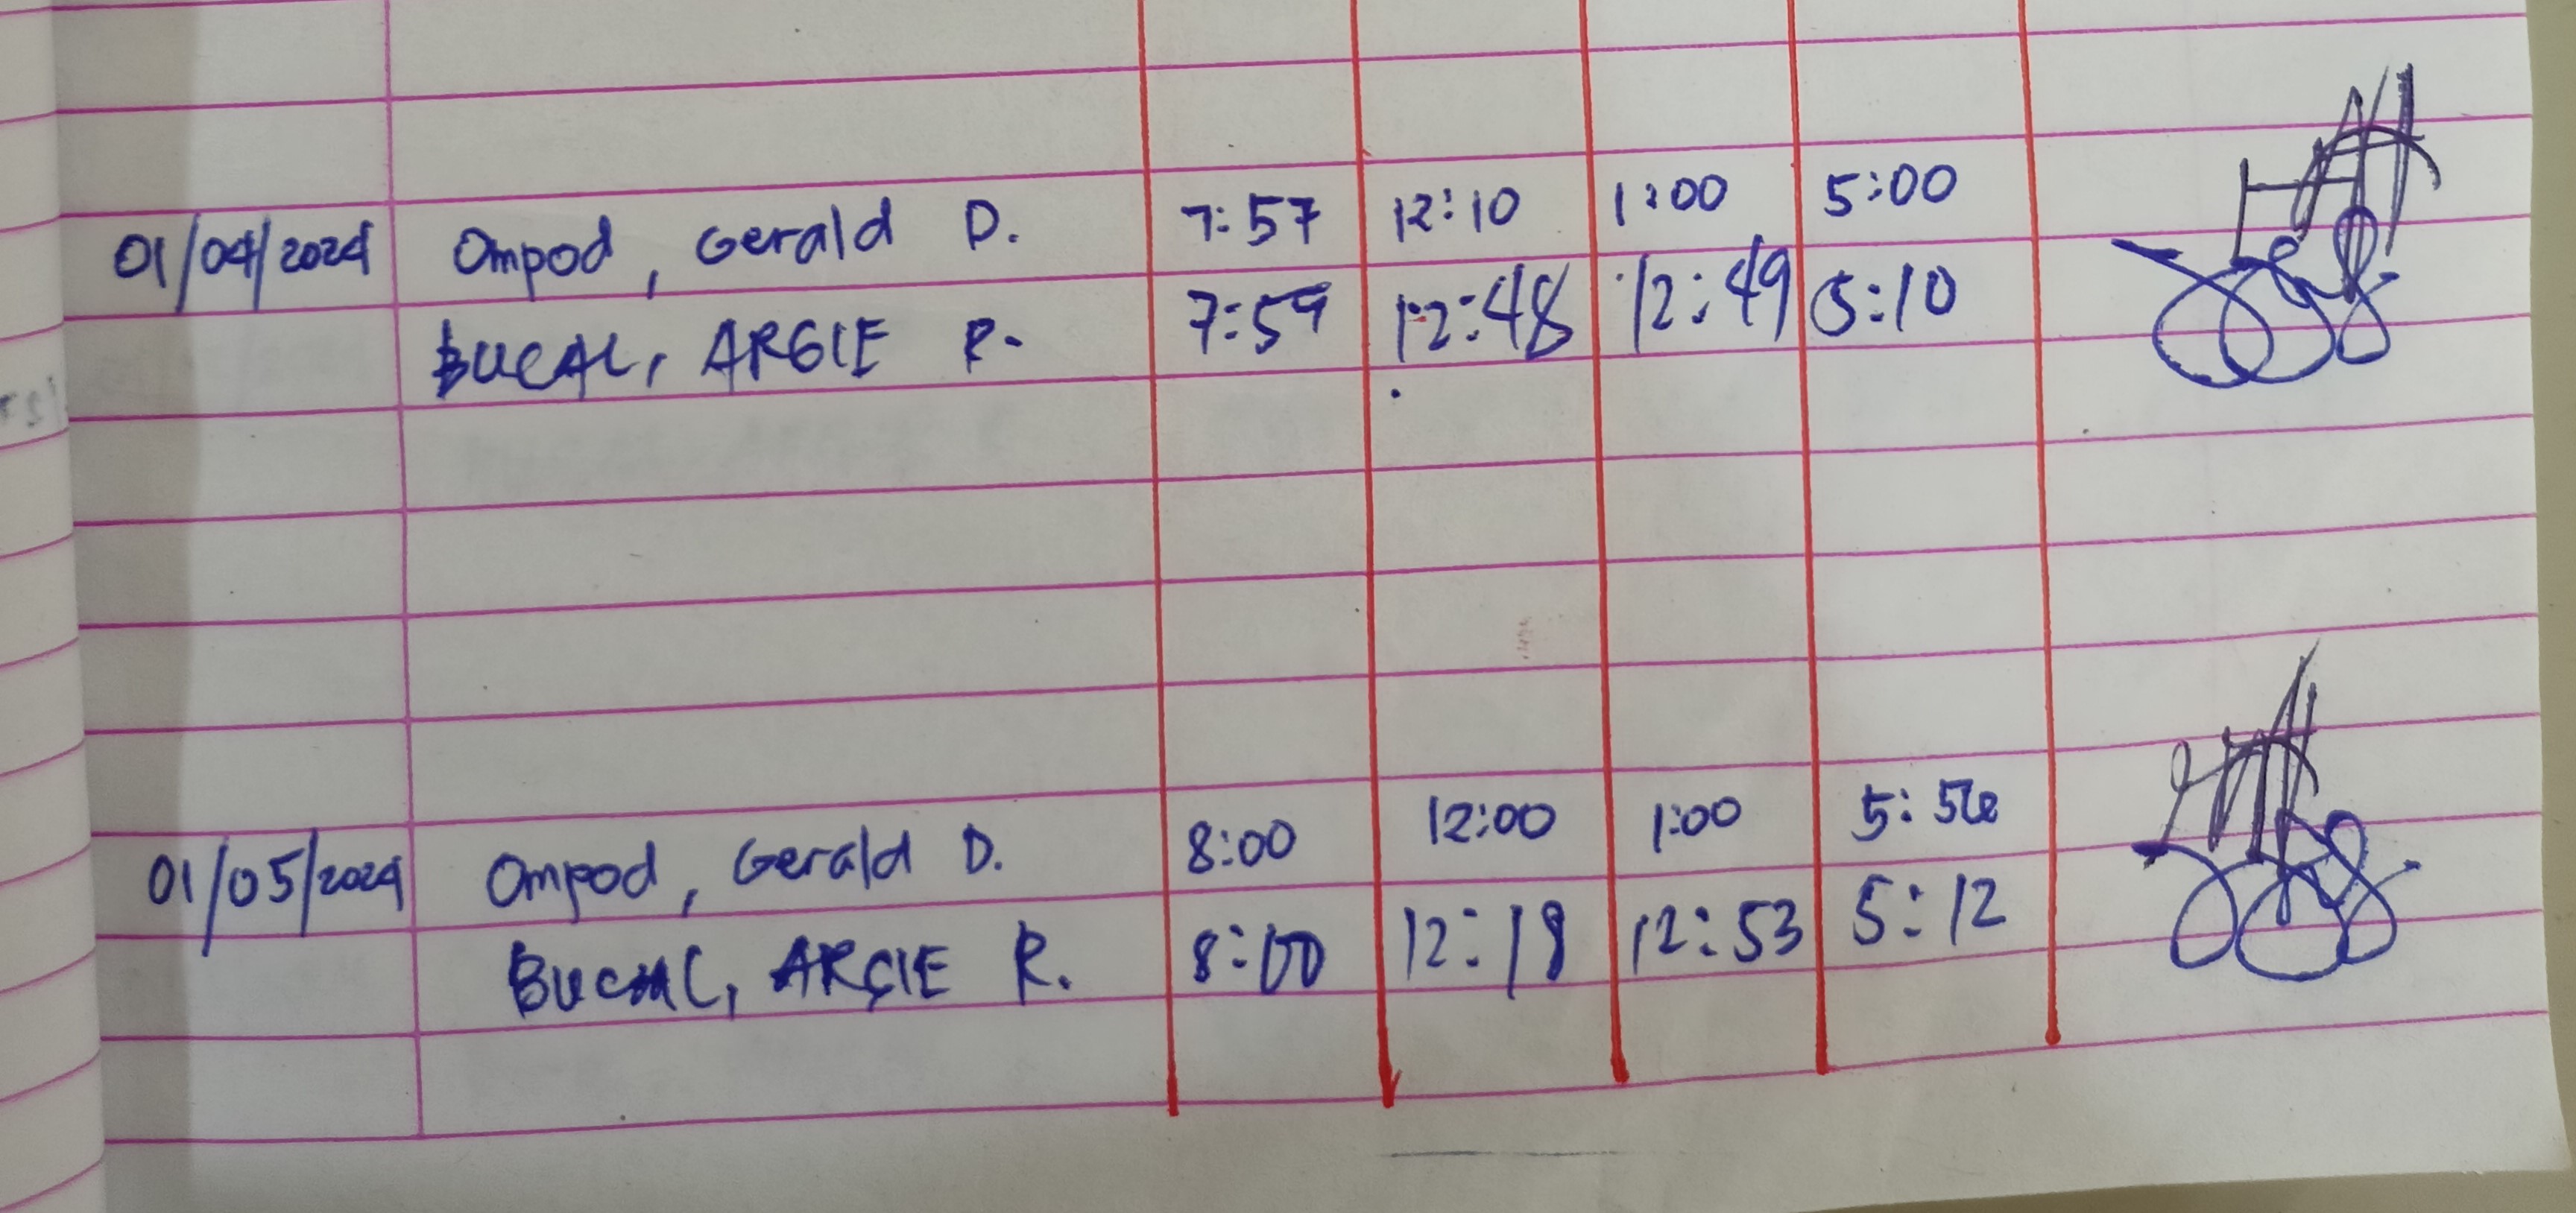 01/04/2024 Ompod, Gerald D. 7:57 12:10 1:00 5:00
BUCAL, ARGIE R. 7:59 12:48 12:49 5:10
01/05/2024 Ompod, Gerald D. 8:00 12:00 1:00 5:56
BUCAL, ARGIE R. 8:00 12:18 12:53 5:12